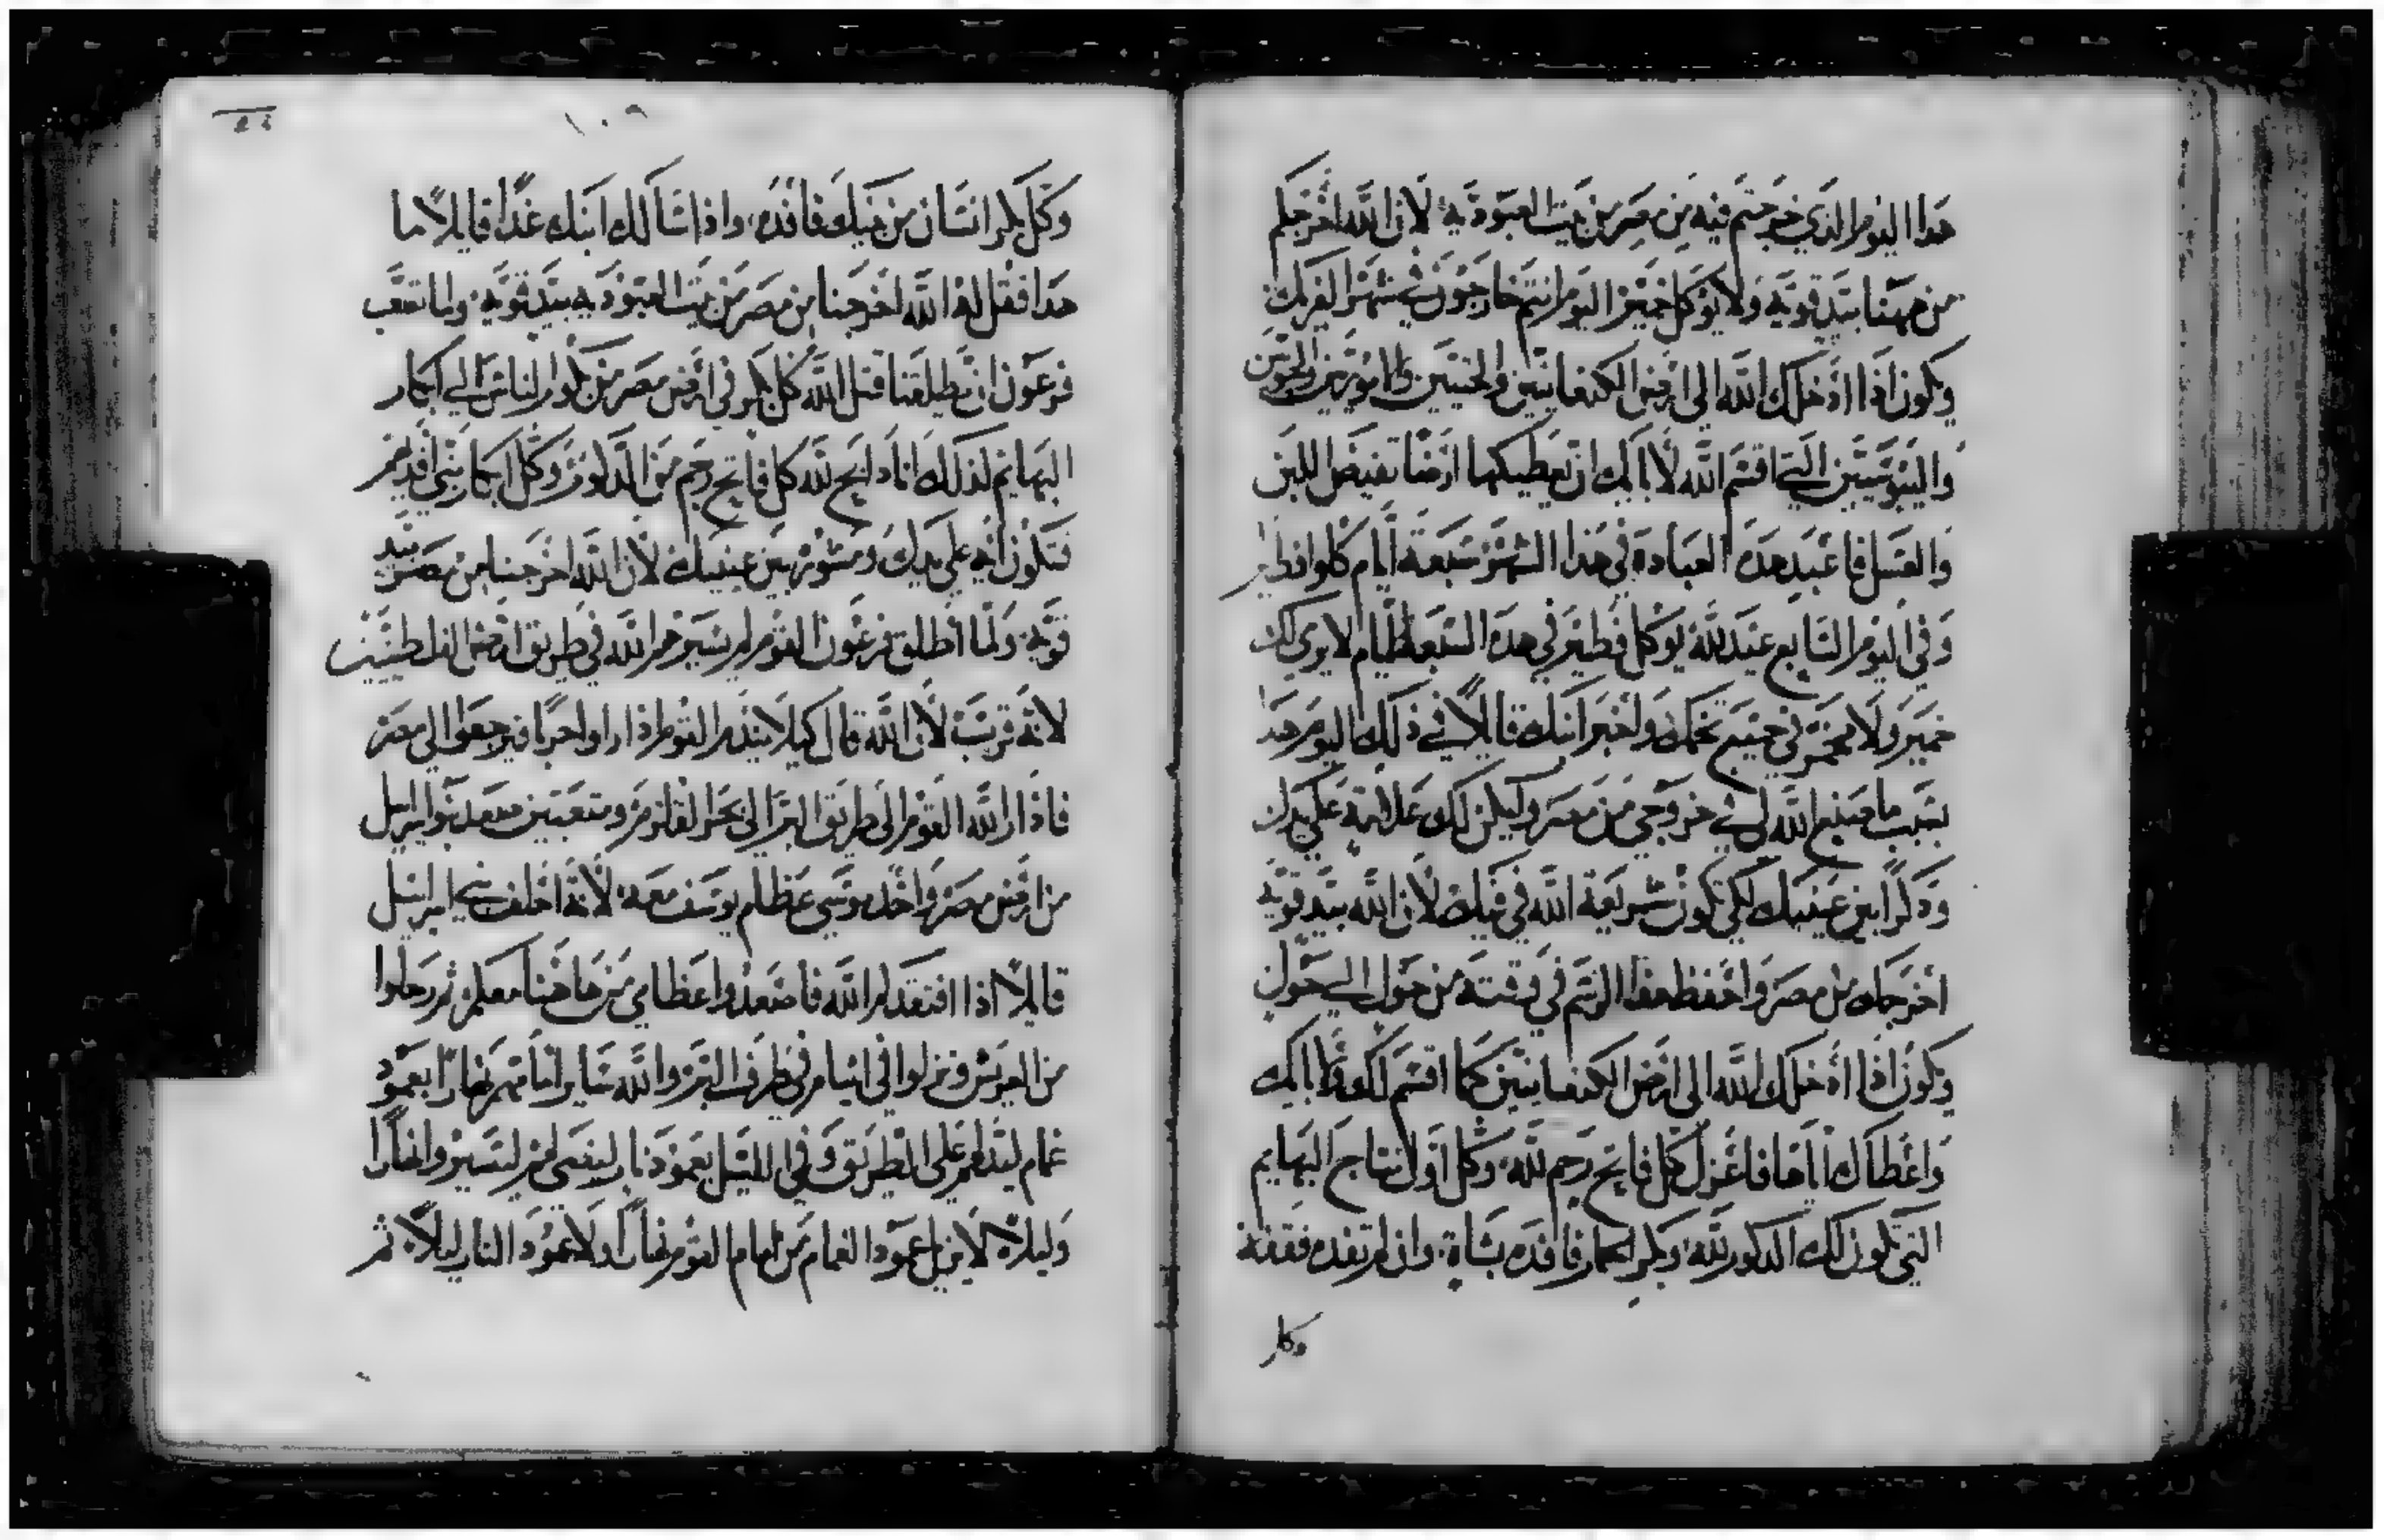 هدا اليوم الذي خرجتم فيه من مصر من بيت العبودية لان الله اخرجكم
من ههنا بيد قوية ولا يوكل خمير اليوم انتم خارجون في شهر الفريك
ويكون اذا ادخلك الله الى ارض الكنعانيين والحتيين والاموريين والحويين
واليبوسيين التي اقسم الله لابايك ان يعطيكها ارضا تفيض اللبن
والعسل فاعبد هده العبادة في هذا الشهر سبعة ايام كلوا فطير
وفي اليوم السابع عيد لله يوكل فطير في هده السبعة ايام لا يرى لك
خمير ولا مختمر في جميع تخمك واخبر ابنك قايلا في ذلك اليوم هدا
بسبب ما صنع الله لي في خروجي من مصر وليكن لك علامة على يدك
ودكرا بين عينيك لكي تكون شريعة الله في فيك لان الله بيد قوية
اخرجك من مصر واحفظ هدا الرسم في وقته من حول الى حول
ويكون اذا ادخلك الله الى ارض الكنعانيين كما اقسم لك ولابايك
واعطاك اياها فاعزل كل فاتح رحم لله وكل اول نتاج البهايم
التي تكون لك الدكور لله وبكر الحمار فافده بشاة وان لم تفده فقفنه
وكل
١٠٩
وكل بكر انسان من بنيك فافده واذا سالك ابنك غدا قايلا ما
هدا فقل له ان الله اخرجنا من مصر من بيت العبودية بيد قوية ولما تصعب
فرعون ان يطلقنا قتل الله كل بكر في ارض مصر من بكور الناس الي ابكار
البهايم لذلك انا دابح لله كل فاتح رحم من الدكور وكل ابكار بني افديهم
فتكون اية على يدك ومشور بين عينيك لان الله اخرجنا من مصر بيد
قوية ولما اطلق فرعون القوم لم يسيرهم الله في طريق ارض الفلسطينيين
لانه قريب لان الله قال كيلا يندم القوم اذا راوا حربا فيرجعوا الى مصر
فادار الله القوم الى طريق البر الى بحر القلزم ومتعبيين صعد بنو اسراييل
من ارض مصر واخد موسي عظام يوسف معه لانه احلف بني اسراييل
قايلا اذا افتقدكم الله فاصعدوا عظامي من هاهنا معكم ثم رحلوا
من العريش ونزلوا في ايثام في طرف البر والله ساير امامهم نهارا بعمود
غمام ليدلهم على الطريق وفي الليل بعمود نار ليضي لهم ليسيروا نهارا
وليلا لا يزل عمود الغمام من امام القوم نهارا ولا عمود النار ليلا ثم